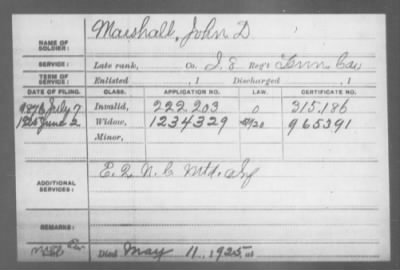 Marshall, John D.
NAME OF SOLDIER:
SERVICE: Late rank, Co. I, 8 Reg't Tenn. Cav
TERM OF SERVICE: Enlisted , 1 Discharged , 1
DATE OF FILING. CLASS. APPLICATION NO. LAW. CERTIFICATE NO.
1876 July 7 Invalid, 222.203 0 315.186
1925 June 2 Widow, 1234329 965391
Minor,
ADDITIONAL SERVICES: E. 2 N.C. Mtd. Inf
REMARKS:
Died May 11, 1925, at